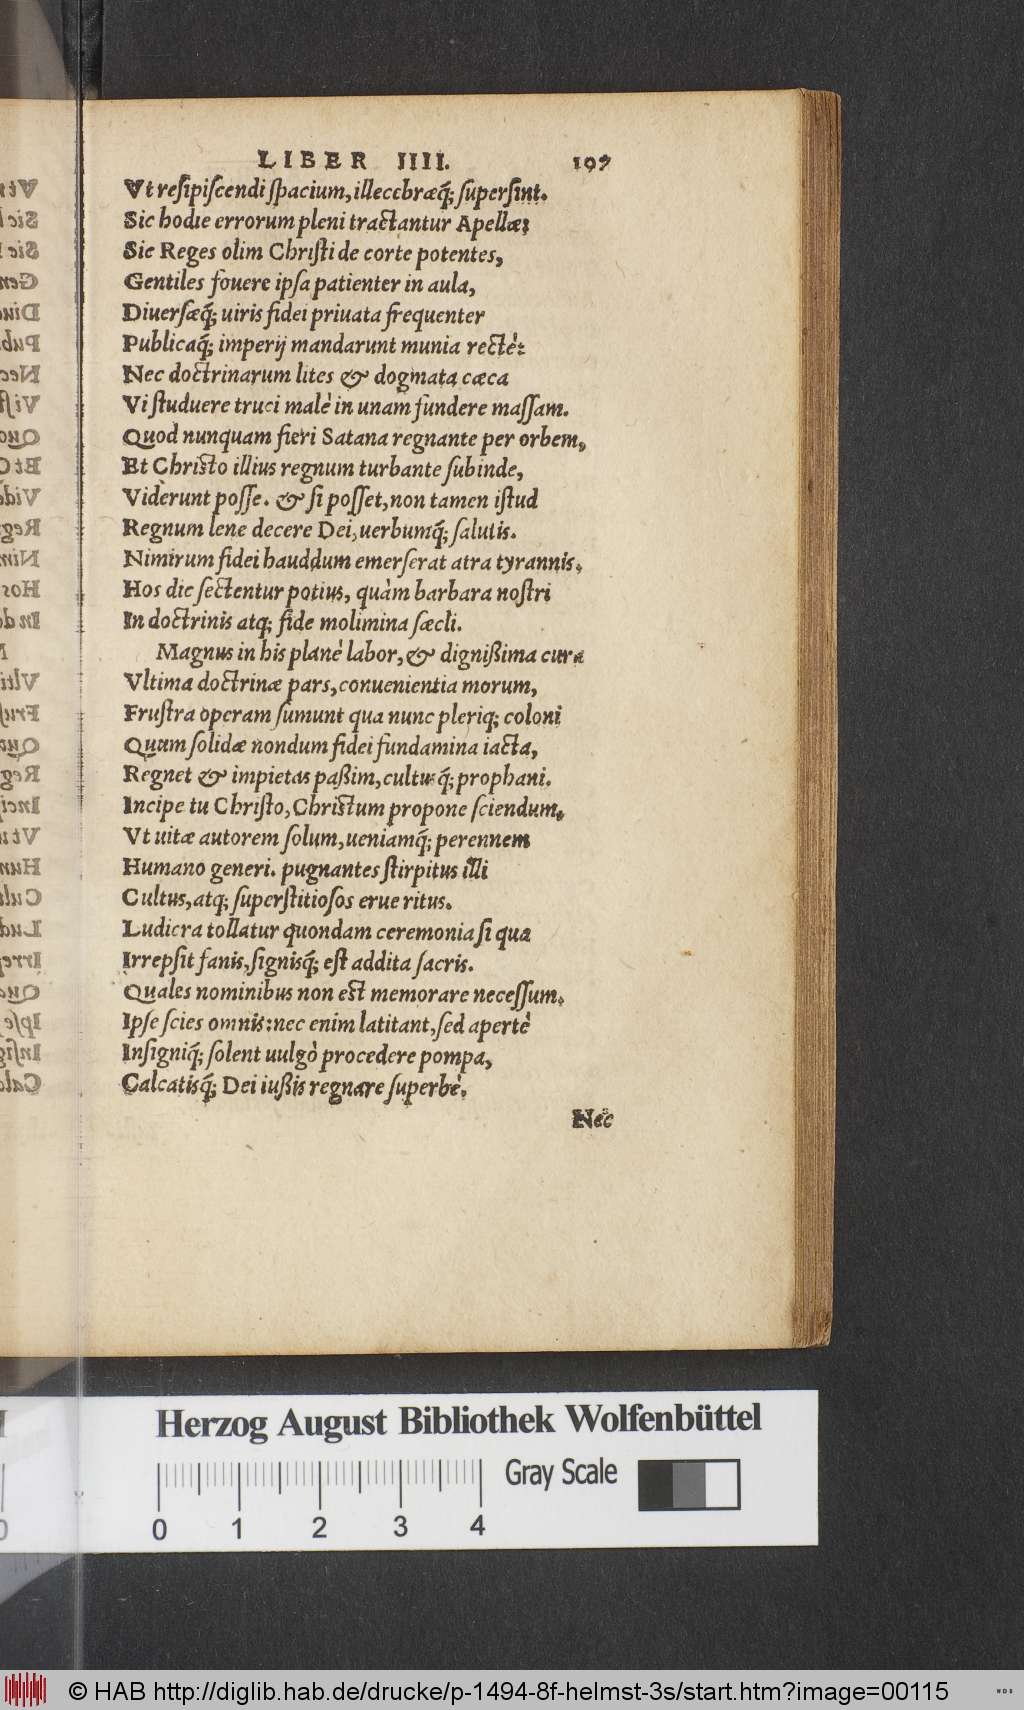 LIBER IIII. 107
Vt resipiscendi spacium, illecebræq́; supersint.
Sic hodie errorum pleni tractantur Apellæ;
Sic Reges olim Christi de corte potentes,
Gentiles fouere ipsa patienter in aula,
Diuersæq́; uiris fidei priuata frequenter
Publicaq́; imperij mandarunt munia rectè:
Nec doctrinarum lites & dogmata cæca
Vi studuere truci malè in unam fundere massam.
Quod nunquam fieri Satana regnante per orbem,
Et Christo illius regnum turbante subinde,
Viderunt posse. & si posset, non tamen istud
Regnum lene decere Dei, uerbumq́; salutis.
Nimirum fidei hauddum emerserat atra tyrannis.
Hos dic sectentur potius, quàm barbara nostri
In doctrinis atq; fide molimina sæcli.
Magnus in his planè labor, & dignißima cura
Vltima doctrinæ pars, conuenientia morum,
Frustra operam sumunt qua nunc pleriq; coloni
Quum solidæ nondum fidei fundamina iacta,
Regnet & impietas paßim, cultusq́; prophani.
Incipe tu Christo, Christum propone sciendum,
Vt uitæ autorem solum, ueniamq́; perennem
Humano generi. pugnantes stirpitus illi
Cultus, atq; superstitiosos erue ritus.
Ludicra tollatur quondam ceremonia si qua
Irrepsit fanis, signisq́; est addita sacris.
Quales nominibus non est memorare necessum,
Ipse scies omnis: nec enim latitant, sed apertè
Insigniq́; solent uulgò procedere pompa,
Calcatisq́; Dei iußis regnare superbè.
Nec
Herzog August Bibliothek Wolfenbüttel
Gray Scale
0 1 2 3 4
© HAB http://diglib.hab.de/drucke/p-1494-8f-helmst-3s/start.htm?image=00115